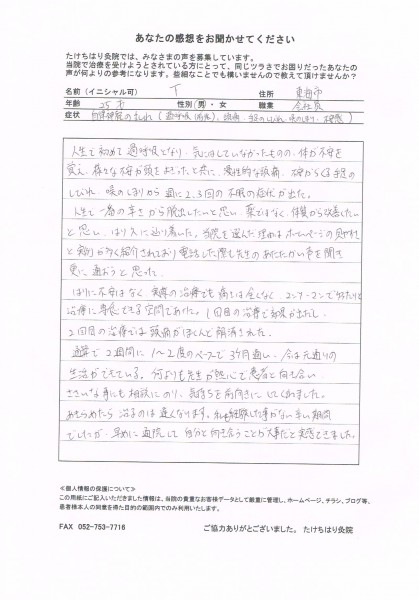 あなたの感想をお聞かせください
たけちはり灸院では、みなさまの声を募集しています。
当院で治療を受けようとされている方にとって、同じツラさでお困りだったあなたの
声が何よりの参考になります。些細なことでも構いませんので教えて頂けませんか?
名前(イニシャル可) T 住所 東海市
年齢 25才 性別 男・女 職業 会社員
症状 自律神経の乱れ(過呼吸、頭痛、手足のしびれ、喉のしまり、不眠)
人生で初めて過呼吸となり、気にはしていなかったものの、体が不安を
覚え、様々な不安が頭をよぎったと共に、慢性的な頭痛、不安からくる手足の
しびれ、喉のしまり、週に2、3回の不眠の症状が出た。
人生で一番の辛さから脱出したいと思い、薬ではなく、体質から改善したい
と思い、はり入に辿り着いた。当院を選んだ理由はホームページの見やすさ
と実例が多く紹介されており、電話した際も先生のあたたかい声を聞き
更に通おうと思った。
はりに不安はなく、実際の治療でも痛みは全くなく、マンツーマンで
治療に専念できる空間であった。1回目の治療で効果が出だし、
2回目の治療では頭痛がほとんど解消された。
通算で2週間に1~2度のペースで3ヶ月通い、今は元通りの
生活ができている。何よりも先生が熱心で患者と向き合い、
ささいな事にも相談にのり、気持ちを前向きにしてくれました。
あきらめたら治るのは遅くなります。私も経験した事がない辛い期間
でしたが、早めに通院して自分と向き合うことが大事だと実感できました。
≪個人情報の保護について≫
この用紙にご記入いただきました情報は、当院の貴重なお客様データとして厳重に管理し、ホームページ、チラシ、ブログ等、
患者様本人の同意を得た目的の範囲内でのみ利用いたします。
FAX 052-753-7716 ご協力ありがとございました。 たけちはり灸院